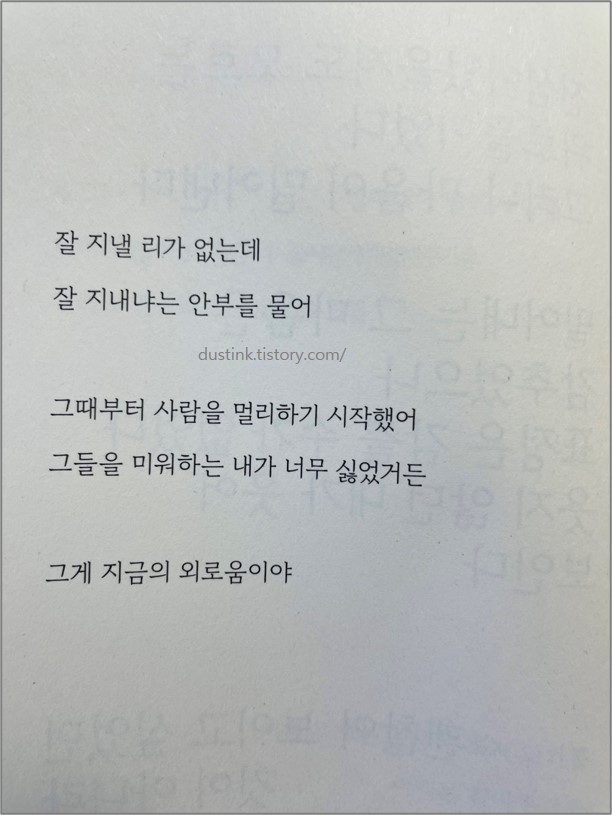 잘 지낼 리가 없는데
잘 지내냐는 안부를 물어
dustink.tistory.com/
그때부터 사람을 멀리하기 시작했어
그들을 미워하는 내가 너무 싫었거든
그게 지금의 외로움이야